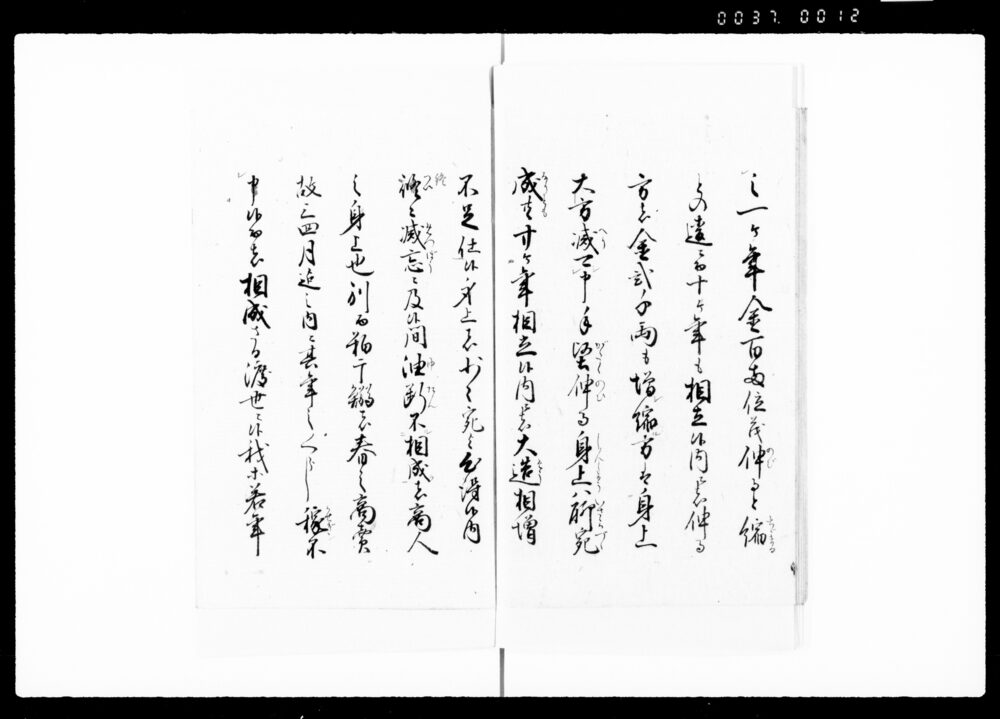 0037.0012
一ヶ年金百両位茂伸ると縮
との違ニ而十ヶ年も相立候内ニ者伸る
方ニ者金弐千両も増縮方者身上
大方減可申手堅伸る身上ハ聊宛
成共廿ヶ年相立候内ニ者大造相増
不足仕候身上者少し宛と心得候内
終ニ滅亡ニ及候間油断不相成者商人
之身上也別而粕干鰯者春之商売
故三四月迄之内ニ其年之くらし稼不
申候而者相成さる渡世ニ候我等若年